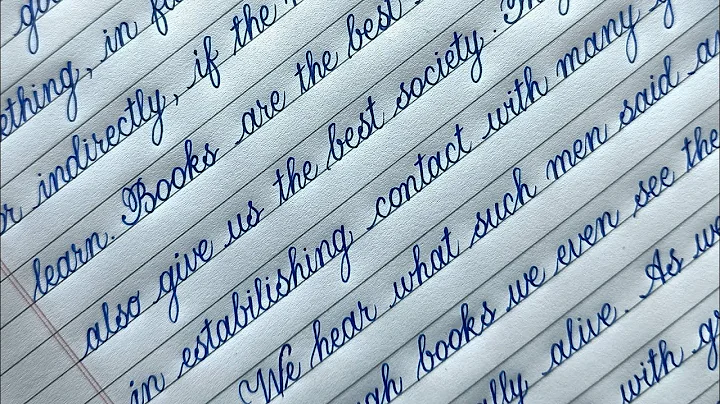 in
or indirectly, if the
learn. Books are the best
also give us the best society.
in estabilishing contact with many
We hear what such men said
books we even see the
alive. As we
with